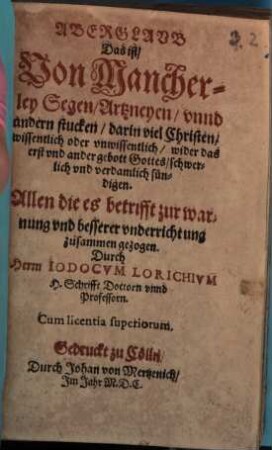 ABERGLAVB
Das ist/
Von Mancher-
ley Segen/Artzneyen/ vnnd
andern stucken/ darin viel Christen/
wissentlich oder vnwissentlich/ wider das
erst vnd ander gebott Gottes/schwer-
lich vnd verdamlich sün-
digen.
Allen die es betrifft zur war-
nung vnd besserer vnderrichtung
zusammen gezogen.
Durch
Herrn IODOCVM LORICHIVM
H. Schrifft Doctorn vnnd
Professorn.
Cum licentia superiorum.
Gedruckt zu Cölln/
Durch Johan von Mertzenich/
Im Jahr M.D.C.